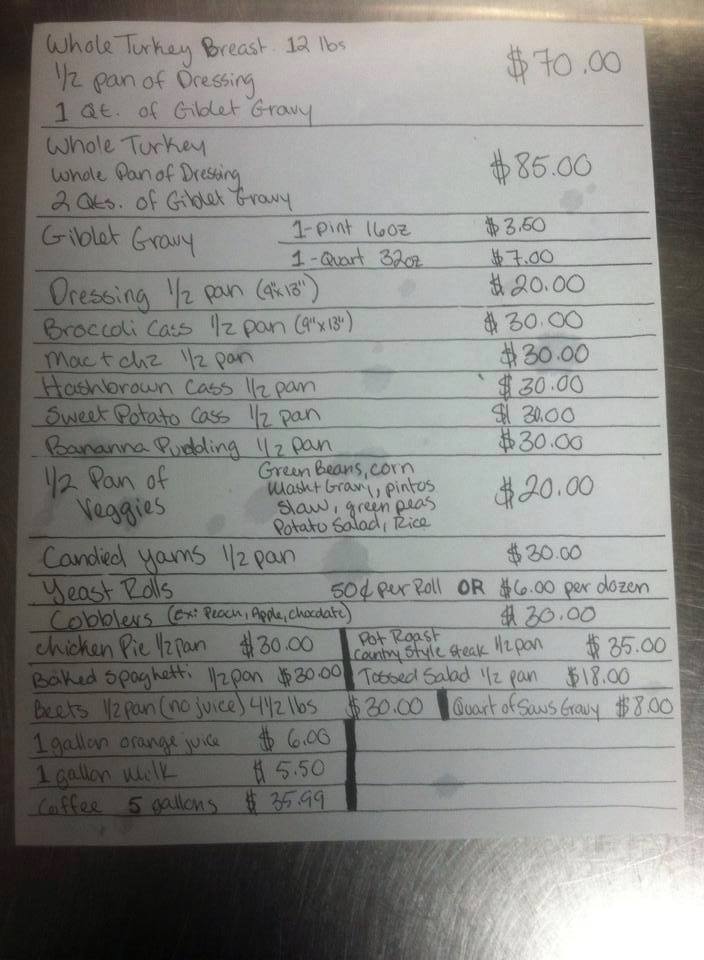 Whole Turkey Breast. 12 lbs
1/2 pan of Dressing $70.00
1 Qt. of Giblet Gravy
Whole Turkey
Whole Pan of Dressing $85.00
2 Qts. of Giblet Gravy
Giblet Gravy 1-pint 16oz $3.50
1-Quart 32oz $7.00
Dressing 1/2 pan (9"x13") $20.00
Broccoli Cass 1/2 pan (9"x13") $30.00
Mac + chz 1/2 pan $30.00
Hashbrown Cass 1/2 pan $30.00
Sweet Potato Cass 1/2 pan $30.00
Bananna Pudding 1/2 pan $30.00
1/2 Pan of Veggies Green Beans, corn
Mash + Gravy, pintos $20.00
Slaw, green peas
Potato Salad, Rice
Candied yams 1/2 pan $30.00
Yeast Rolls 50¢ per Roll OR $6.00 per dozen
Cobblers (Ex: Peach, Apple, chocolate) $30.00
Chicken Pie 1/2 pan $30.00
Pot Roast
Country Style Steak 1/2 pan $35.00
Baked Spaghetti 1/2 pan $30.00
Tossed Salad 1/2 pan $18.00
Beets 1/2 pan (no juice) 4 1/2 lbs $30.00
Quart of Saws Gravy $8.00
1 gallon orange juice $6.00
1 gallon milk $5.50
Coffee 5 gallons $35.99